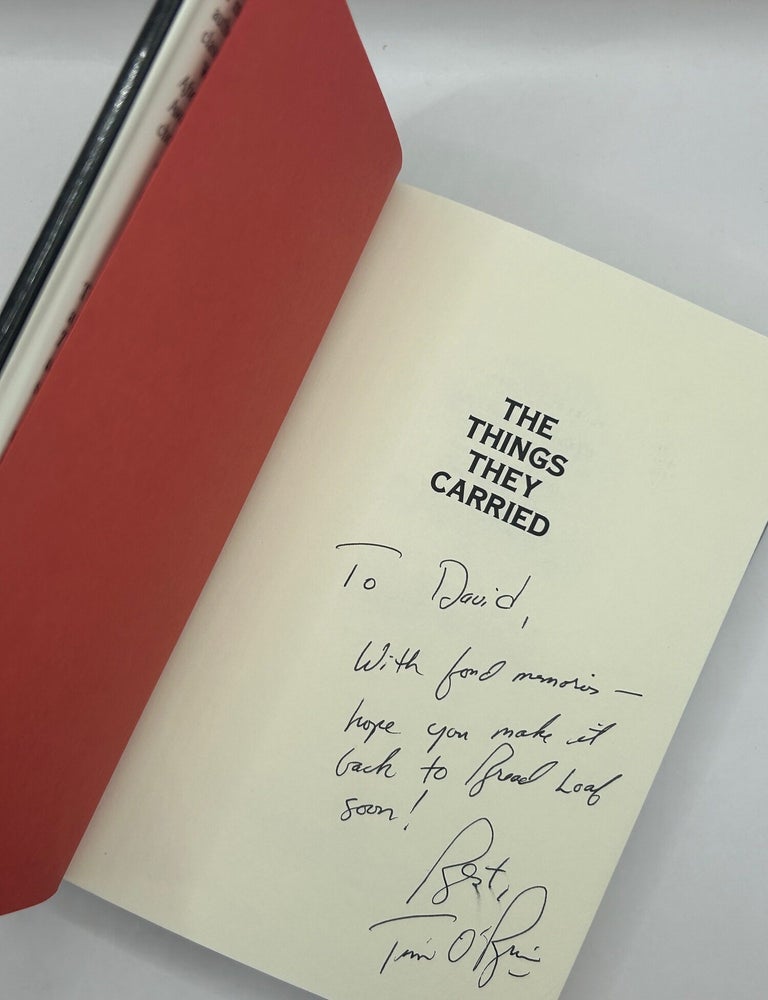 THE
THINGS
THEY
CARRIED
To David,
With fond memories —
hope you make it
back to Bread Loaf
soon!
Best,
Tim O'Brien